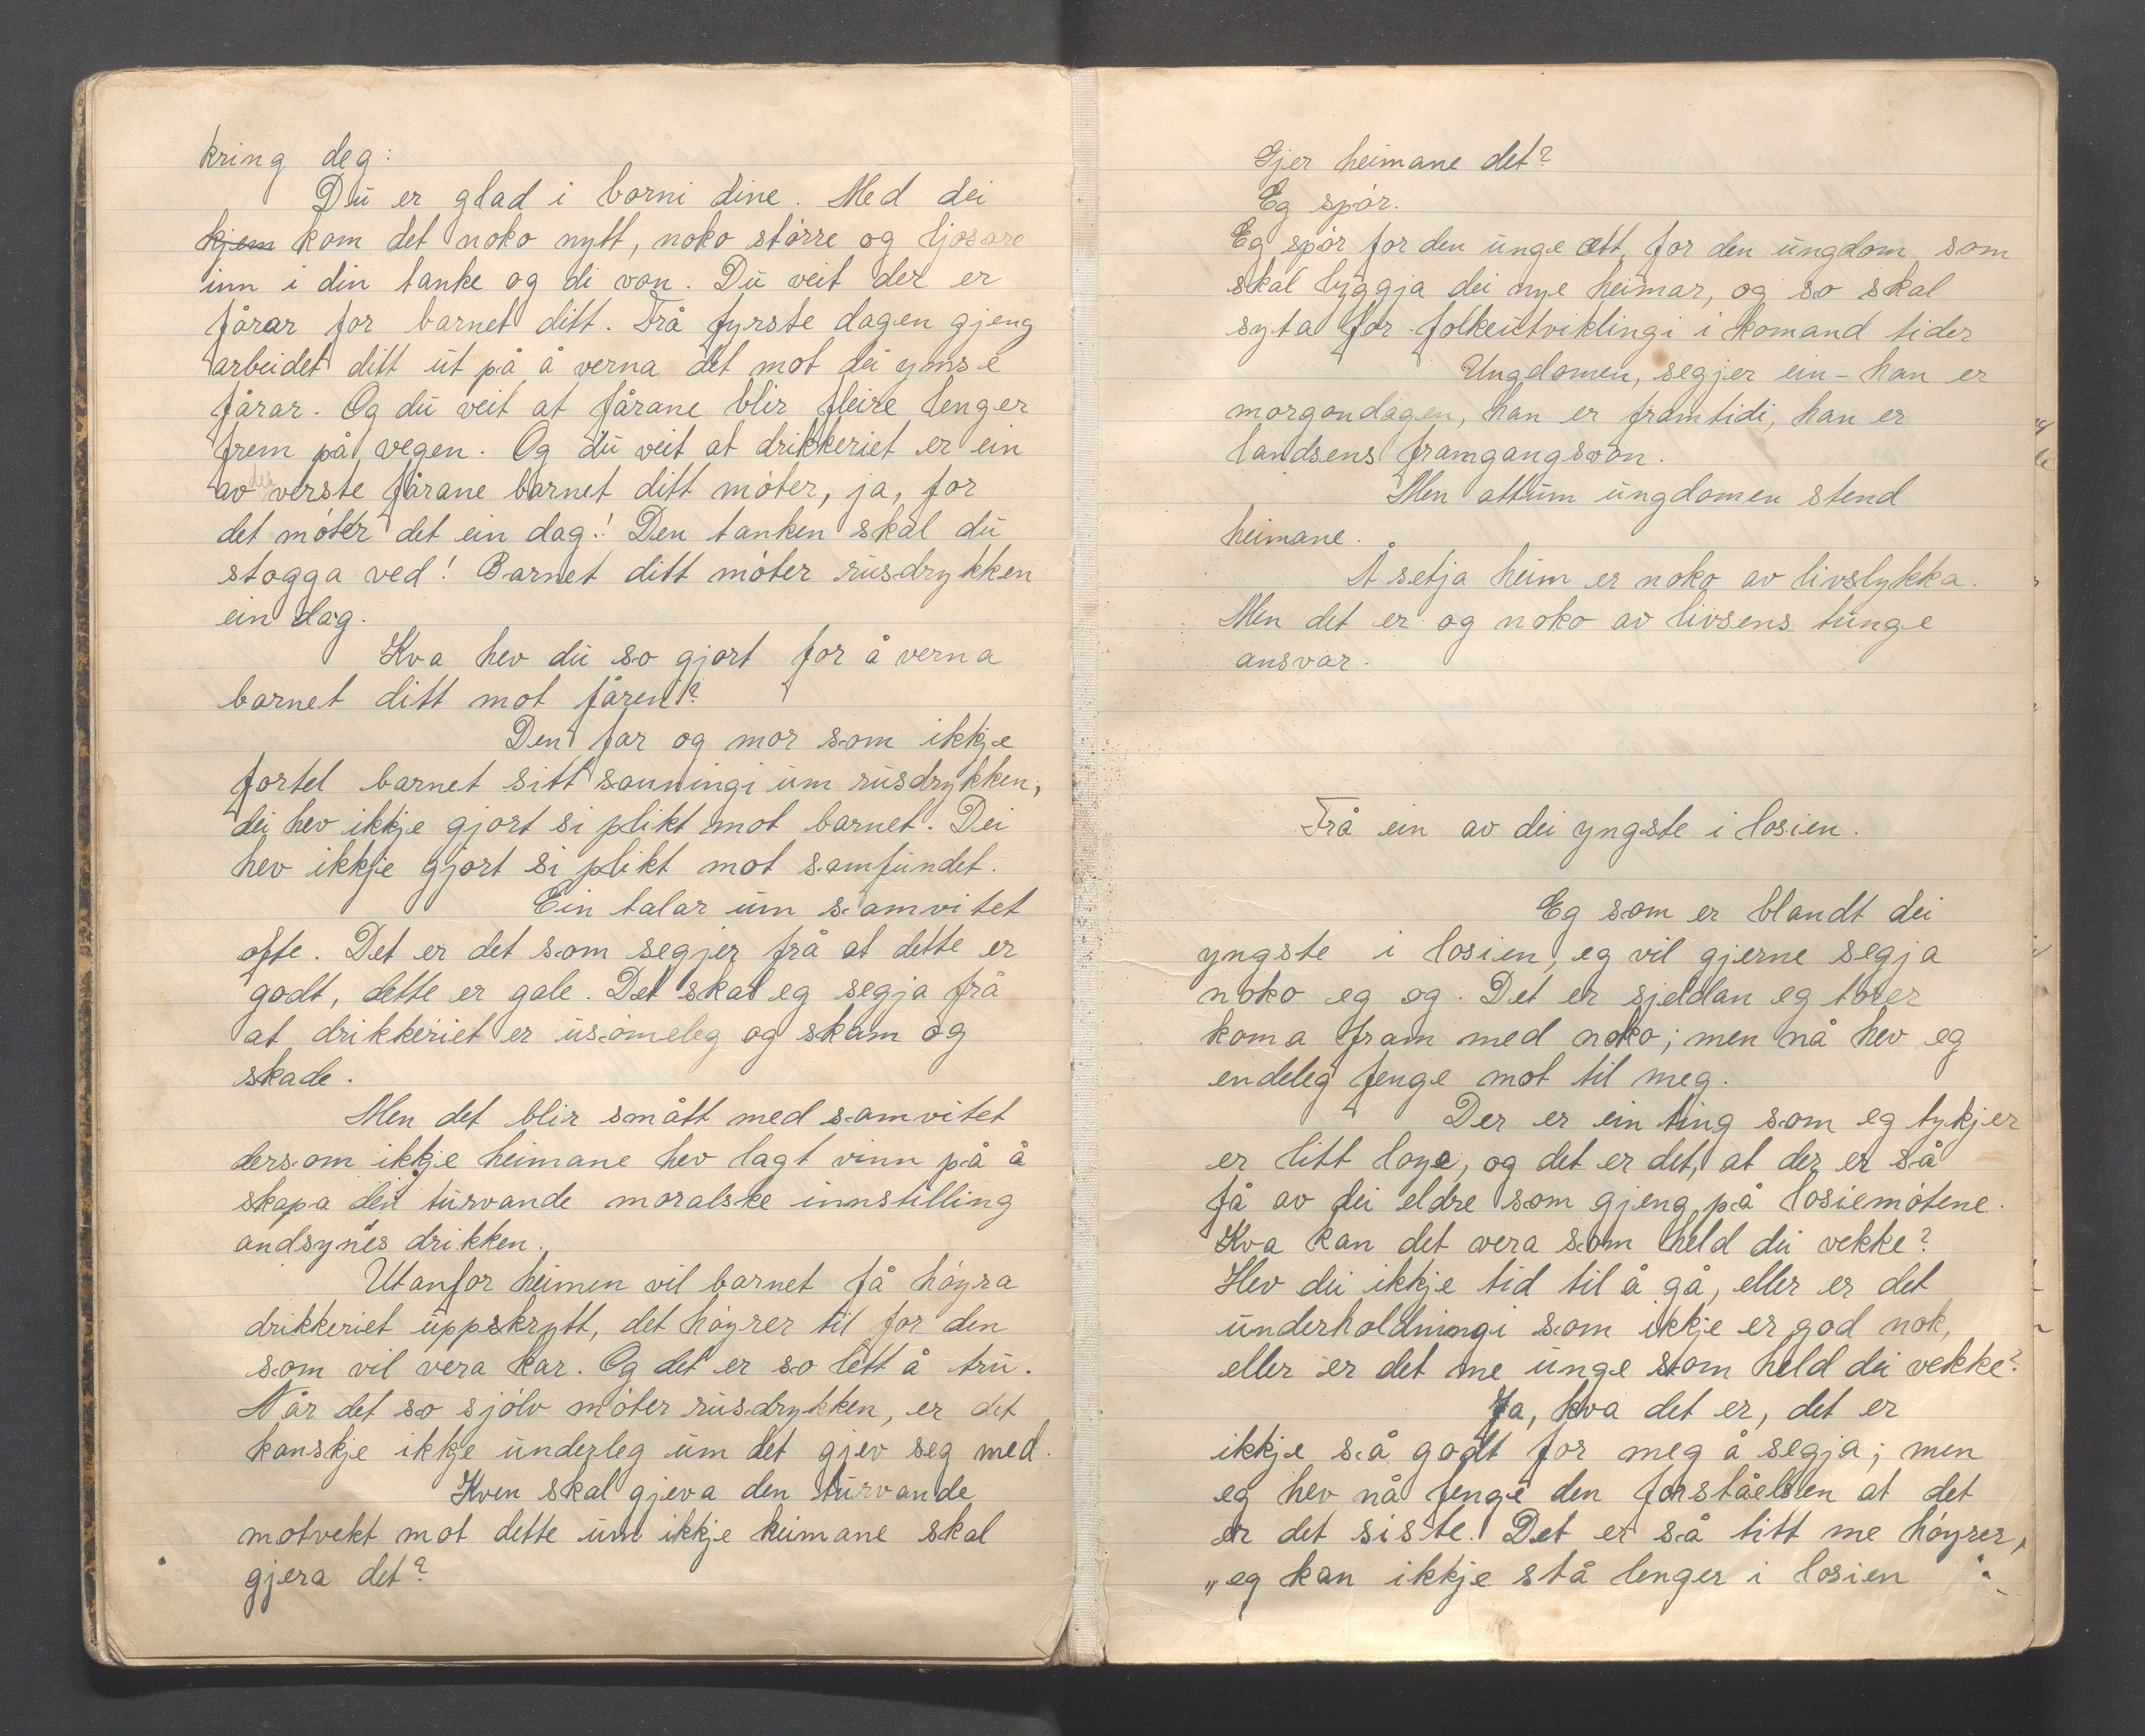 kring deg:
Du er glad i borni dine. Med dei
kjem kom det noko nytt, noko större og ljosare
inn i din tanke og di von. Du veit der er
fårar for barnet ditt. Frå fyrste dagen gjeng
arbeidet ditt ut på å verna det mot dei ymse
fårar. Og du veit at fårane blir fleire lenger
frem på vegen. Og du veit at drikkeriet er ein
av dei verste fårane barnet ditt móter, ja, for
det móter det ein dag! Den tanken skal du
stogga ved! Barnet ditt móter rusdrykken
ein dag.
Kva hev du so gjort for å verna
barnet ditt mot fåren?
Den far og mor som ikkje
fortel barnet sitt sanningi um rusdrykken,
dei hev ikkje gjort si plikt mot barnet. Dei
hev ikkje gjort si plikt mot samfundet.
Ein talar um samvitet
ofte. Det er det som segjer frå at dette er
godt, dette er gale. Det skal eg segja frå
at drikkeriet er usómeleg og skam og
skade.
Men det blir smått med samvitet
dersom ikkje heimane hev lagt vinn på å
skapa dei turvande moralske innstilling
andsynes drikken.
Utanfor heimen vil barnet få hóyra
drikkeriet uppskrytt, det hóyrer til for den
som vil vera kar. Og det er so lett å tru.
Når det so sjólv móter rusdrykken, er det
kanskje ikkje underleg um det gjev seg med.
Kven skal gjeva den turvande
motvekt mot dette um ikkje heimane skal
gjera det?
Gjer heimane det?
Eg spór.
Eg spór for den unge ætt, for den ungdom som
skal byggja dei nye heimar, og so skal
syta for folkeutviklingi i komand tider
Ungdomen, segjer ein - han er
morgondagen, han er framtidi, han er
landsens framgangsvon.
Men attum ungdomen stend
heimane.
Å setja heim er noko av livslykka.
Men det er og noko av livsens tunge
ansvar.
Frå ein av dei yngste i losien.
Eg som er blandt dei
yngste i losien, eg vil gjerne segja
noko eg og. Det er sjeldan eg torer
koma fram med noko; men nå hev eg
endeleg fenge mot til meg.
Der er ein ting som eg tykjer
er litt loye, og det er det, at der er så
få av dei eldre som gjeng på losiemótene.
Kva kan det vera som held dei vekke?
Hev dei ikkje tid til å gå, eller er det
underholdningi som ikkje er god nok,
eller er det me unge som held dei vekke?
Ja, kva det er, det er
ikkje så godt for meg å segja; men
eg hev nå fenge den forståelsen at det
er det siste. Det er så titt me hóyrer,
„eg kan ikkje stå lenger i losien